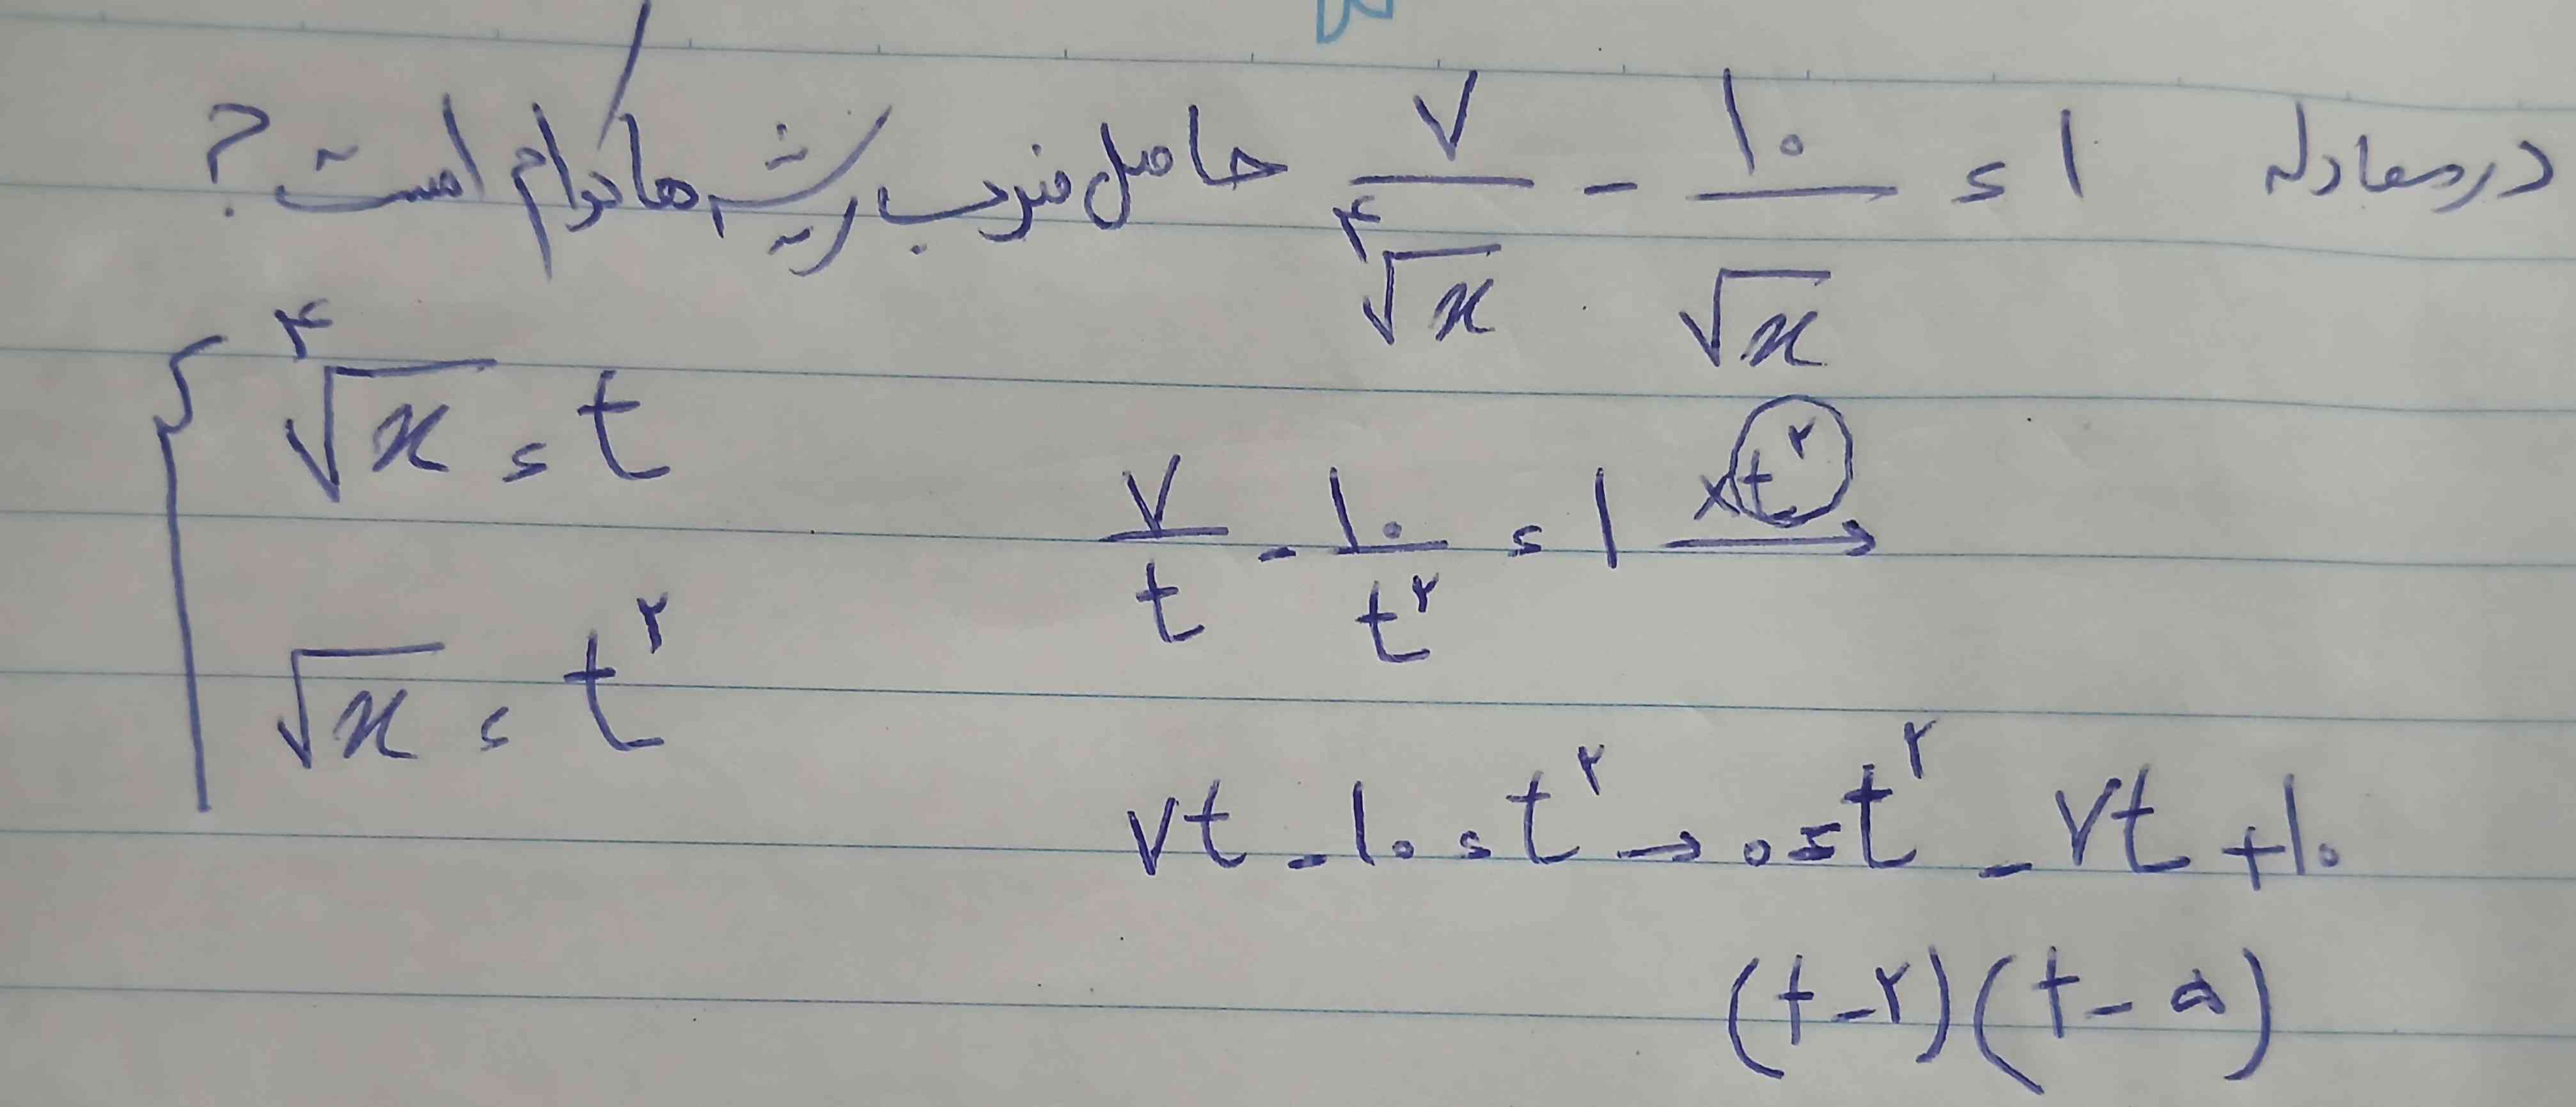 در معادله ۷/⁴√x - ۱۰/√x = ۱ حاصل ضرب ریشه ها کدام است؟
⁴√x = t
۷/t - ۱۰/t^۲ = ۱ ×t^۲ →
√x = t^۲
۷t - ۱۰ = t^۲ → ۰ = t^۲ - ۷t + ۱۰
(t - ۲)(t - ۵)